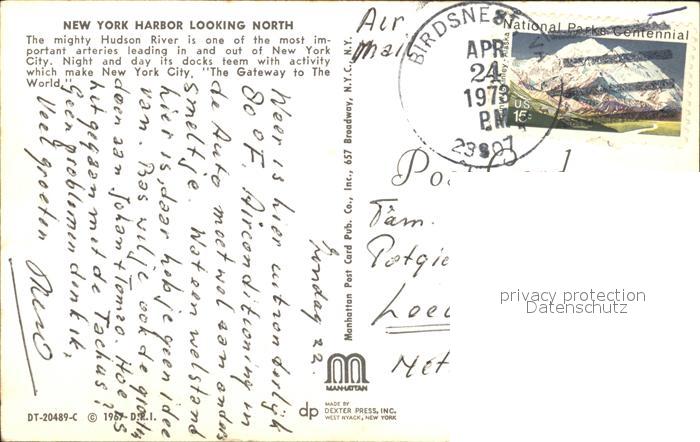 NEW YORK HARBOR LOOKING NORTH
The mighty Hudson River is one of the most im-
portant arteries leading in and out of New York
City. Night and day its docks teem with activity
which make New York City, "The Gateway to The
World".
Air
Mail
BIRDSNEST
APR
24
1973
PM
23307
National Parks Centennial
US
15c
privacy protection
Datenschutz
Fam.
Potgie
Manhattan Post Card Pub. Co., Inc., 657 Broadway, N.Y.C., N.Y.
MANHATTAN
dp
MADE BY
DEXTER PRESS, INC.
WEST NYACK, NEW YORK
Zondag 22.
Weer is hier uitzonderlijk
80° F. Airconditioning in
de Auto moet wel aan anders
smelt je. Wat een welstand
hier is, daar heb je geen idee
van. Bas wil je ook de groeten
doen aan Johan + Tomeo. Hoe is
hit gegaan met de Taunus?
Geen problemen denk ik.
Veel groeten
DT-20489-C © 1967 D.P.I.